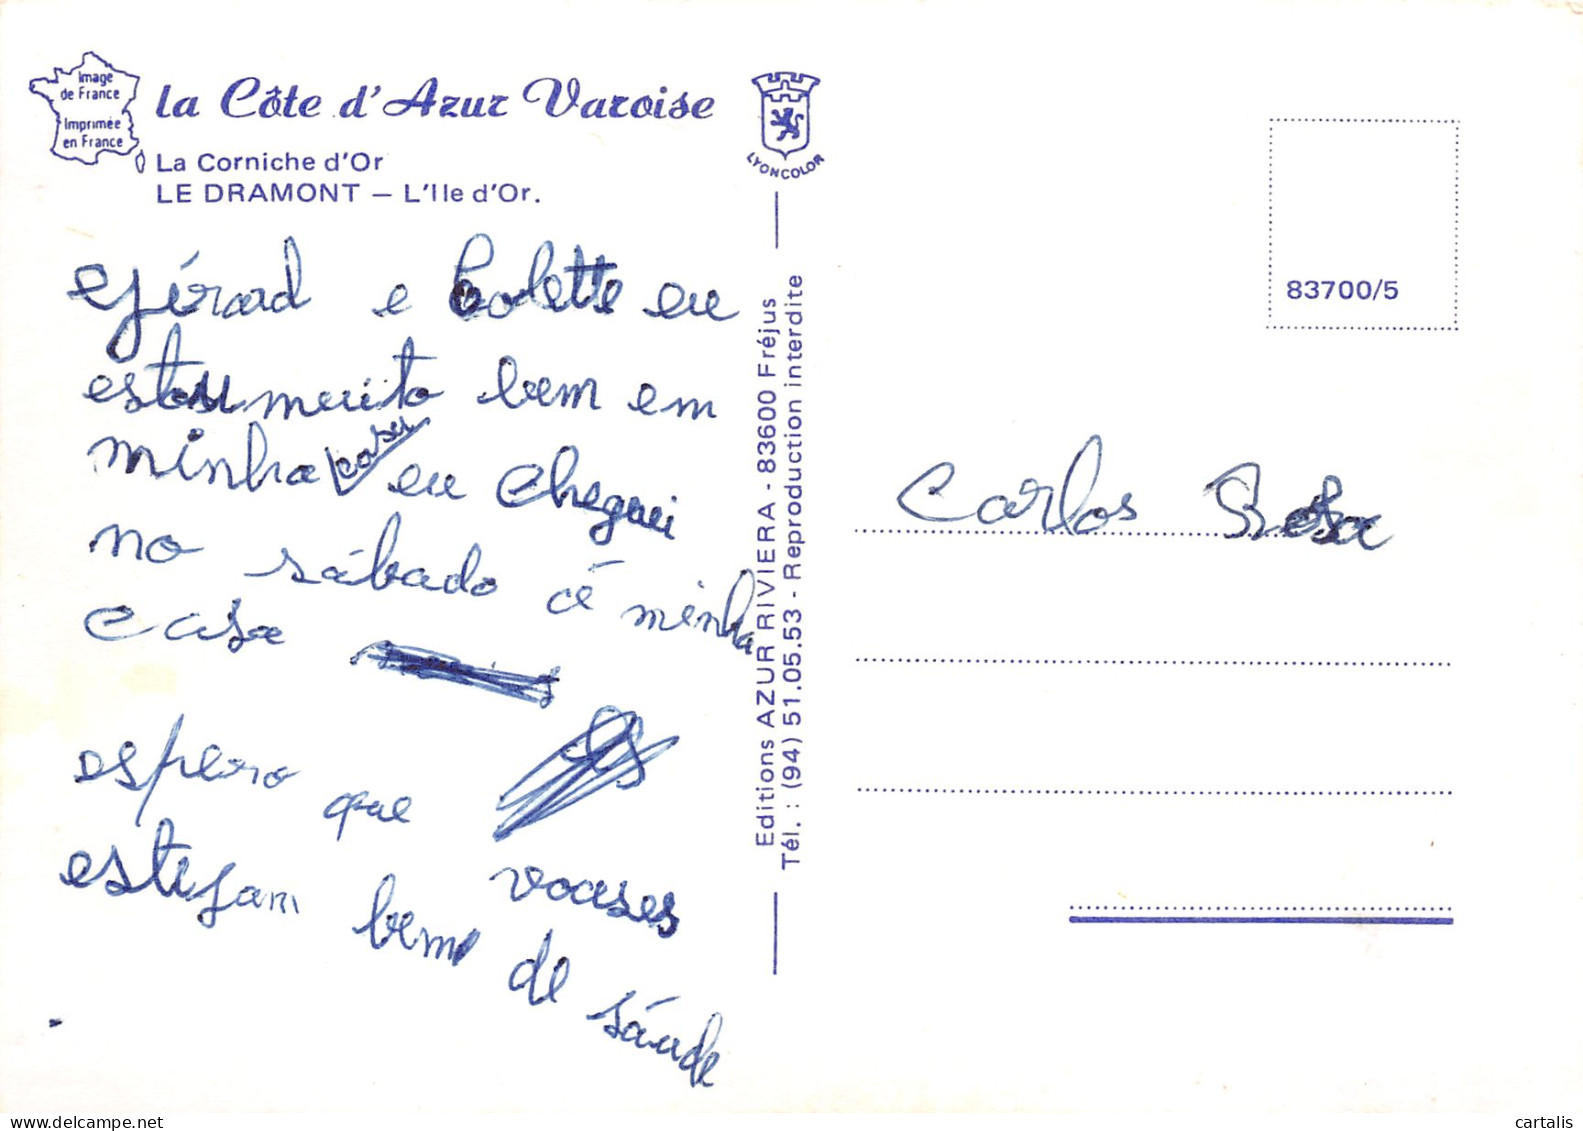 Image
de France
Imprimée
en France
la Côte d'Azur Varoise
La Corniche d'Or
LE DRAMONT – L'Ile d'Or.
LYONCOLOR
Gérard e Colette eu
estou muito bem em
minha casa eu cheguei
no sábado á minha
casa
espero que
voceses
estejam bem de sáude
Editions AZUR RIVIERA - 83600 Fréjus
Tél. : (94) 51.05.53 - Reproduction interdite
83700/5
Carlos Rosa
cartalis